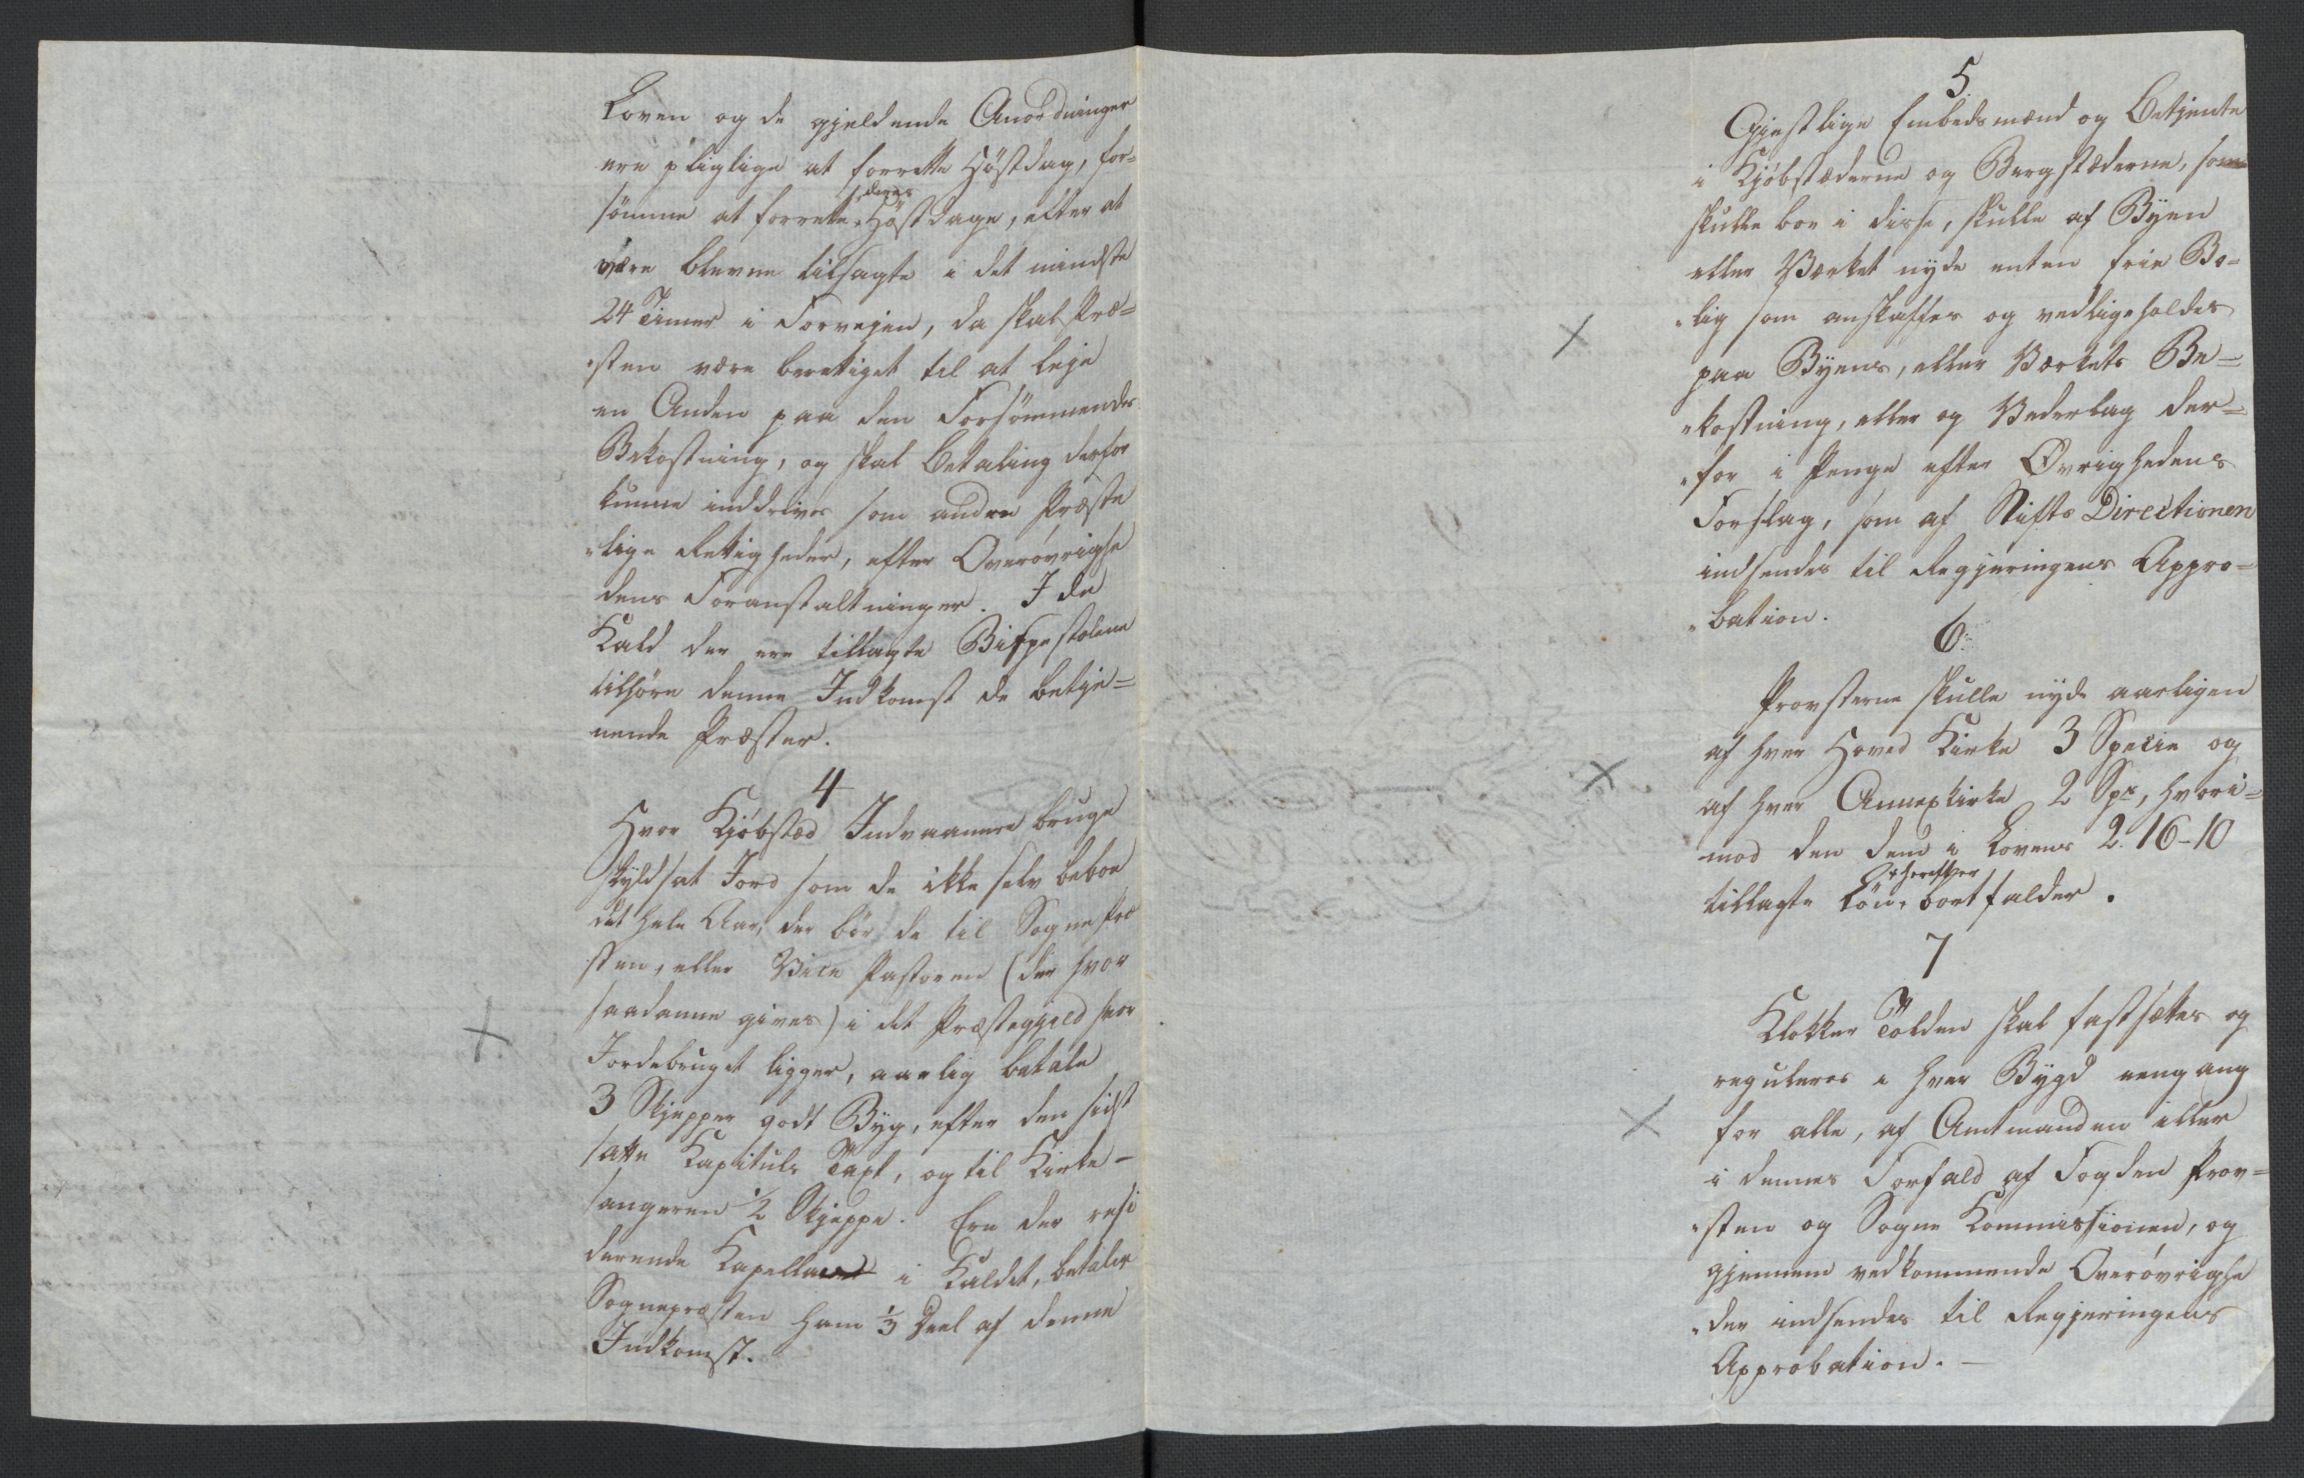 Loven og de gjeldende Anordninger
ere pligtige at forrette Høstdag, for-
sømme at forrette deres Høstdage, efter at
være blevne tilsagte i det mindste
24 Timer i Forvejen, da skal Præ-
"sten være berettiget til at leje
en Anden paa den Forsømmendes
Bekostning, og skal Betaling derfor
kunne inddrives som andre Præste
"lige Rettigheder, efter Overøvrighe
dens Foranstaltninger. I de
Kald der ere tillagte Bispestolene
tilhøre denne Indkomst de betje-
nende Præster.
4
Hvor Kjøbstæd Indvaanere bruge
skyldsat Jord som de ikke selv beboe
det hele Aar, der bør de til Sognepræ
sten, eller Vice Pastoren (der hvor
saadanne gives) i det Præstegjeld hvor
Jordebruget ligger, aarlig betale
3 Skjepper godt Byg, efter den sidst
satte Kapituls Taxt, og til Kirke-
sangeren ½ Skjeppe. Ere der resi
derende Kapellaner i Kaldet, betaler
Sognepræsten ham ⅓ Deel af denne
Indkomst.
5
Gjestlige Embedsmænd og Betjente
i Kjøbstæderne og Bergstæderne, som
skulle boe i disse, skulle af Byen
eller Værket nyde enten frie Bo-
"lig som anskaffes og vedligeholdes
paa Byens, eller Værkets Be-
"kostning, eller og Vederlag der-
"for i Penge efter Øvrighedens
Forslag, som af Stifts Directionen
indsendes til Regjeringens Appro-
"bation.
6.
Provsterne skulle nyde aarligen
af hver Hoved Kirke 3 Specie og
af hver Annexkirke 2 Spc, hvori-
mod den dem i Lovens 2. 16-10
tillagte Løn herefter bortfalder.
7
Klokker Tolden skal fastsættes og
reguleres i hver Bygd eengang
for alle, af Amtmanden eller
i dennes Forfald af Fogden Prov-
"sten og Sogne Kommissionen, og
gjennem vedkommende Overøvrighe
"der indsendes til Regjeringens
Approbation. -